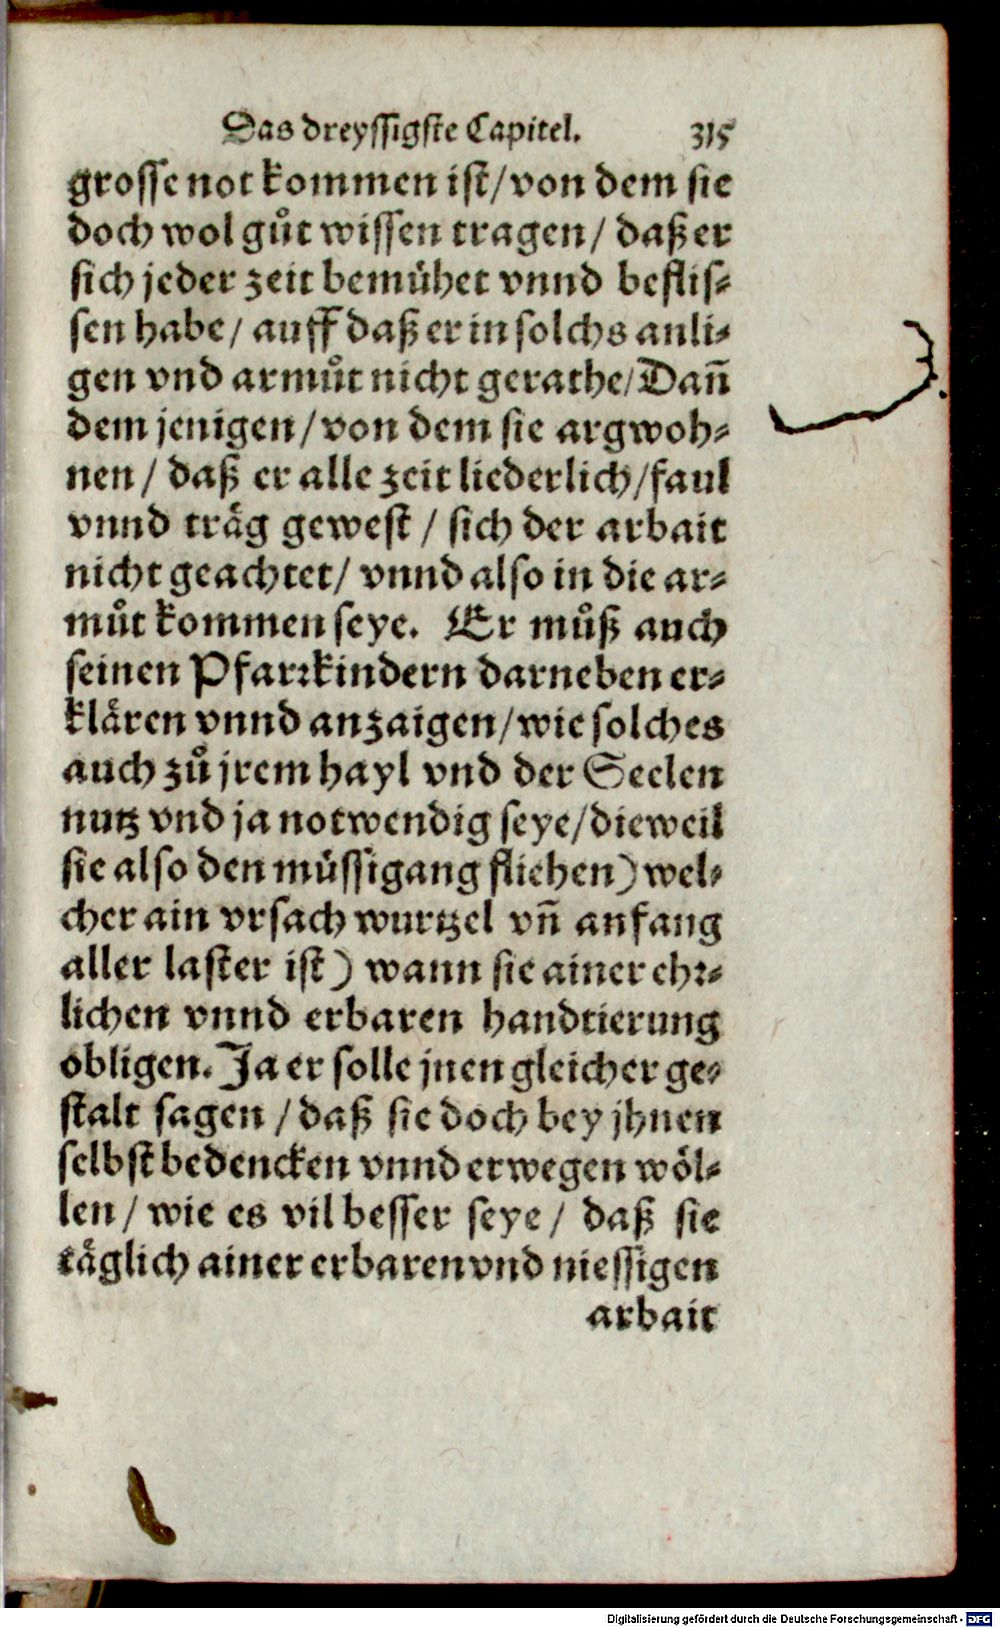 Das dreyssigste Capitel. 315
grosse not kommen ist/von dem sie
doch wol gůt wissen tragen/ daß er
sich jeder zeit bemühet vnnd beflis⸗
sen habe/ auff daß er in solchs anli⸗
gen vnd armůt nicht gerathe/Dañ
dem jenigen/von dem sie argwoh⸗
nen/ daß er alle zeit liederlich/faul
vnnd träg gewest/ sich der arbait
nicht geachtet/ vnnd also in die ar⸗
můt kommen seye. Er můß auch
seinen Pfarꝛkindern darneben er⸗
klären vnnd anzaigen/wie solches
auch zů jrem hayl vnd der Seelen
nutz vnd ja notwendig seye/dieweil
sie also den müssigang fliehen) wel⸗
cher ain vrsach wurtzel vñ anfang
aller laster ist) wann sie ainer ehꝛ⸗
lichen vnnd erbaren handtierung
obligen. Ja er solle jnen gleicher ge⸗
stalt sagen/daß sie doch bey jhnen
selbst bedencken vnnd erwegen wöl⸗
len/ wie es vil besser seye/ daß sie
täglich ainer erbaren vnd niessigen
arbait
Digitalisierung gefördert durch die Deutsche Forschungsgemeinschaft - DFG